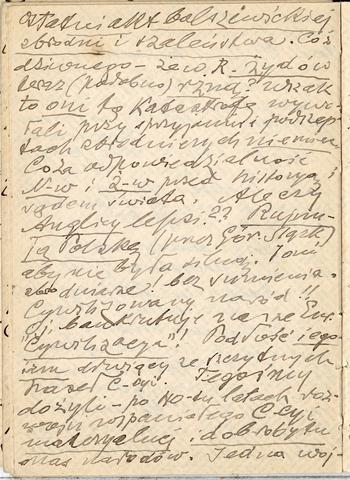 ostatni akt bolszewickiej
zbrodni i szaleństwa. Cóż
dziwnego – że w R. Żydów
teraz (podobno) rżną? Wszak
to oni tą katastrofę wywo-
łali przy sprzyjaniu i podszep-
tach zbrodniczych niemców.
Coza odpowiedzialność
N-w i Ż-w przed historyą i
sądem świata. Ale czy
Anglicy lepsi?? Rujnu-
ją Polskę (przez Gór. Śląsk)
aby nie była silną! Toni
zbrodniarze! bez sumienia.
Cywilizowany naród!!
Oj, bankrutuje nasze Eur.
"Cywilizacja"! Podłość i ego-
izm drwiący ze szczytnych
haseł C-cyi. Tegośmy
dożyli – po 140-tu latach roz-
woju wspaniałego C-cyi
materyalnej i dobrobytu
mas narodów. Jedna woj-